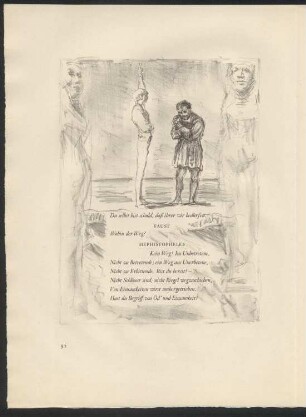 Du selbst bist schuld, daß ihrer wir bedürfen.
FAUST
Wohin der Weg?
MEPHISTOPHELES
Kein Weg! Ins Unbetretene,
Nicht zu Betretende; ein Weg ans Unerbetene,
Nicht zu Erbittende. Bist du bereit? —
Nicht Schlösser sind, nicht Riegel wegzuschieben,
Von Einsamkeiten wirst umhergetrieben.
Hast du Begriff von Öd' und Einsamkeit?